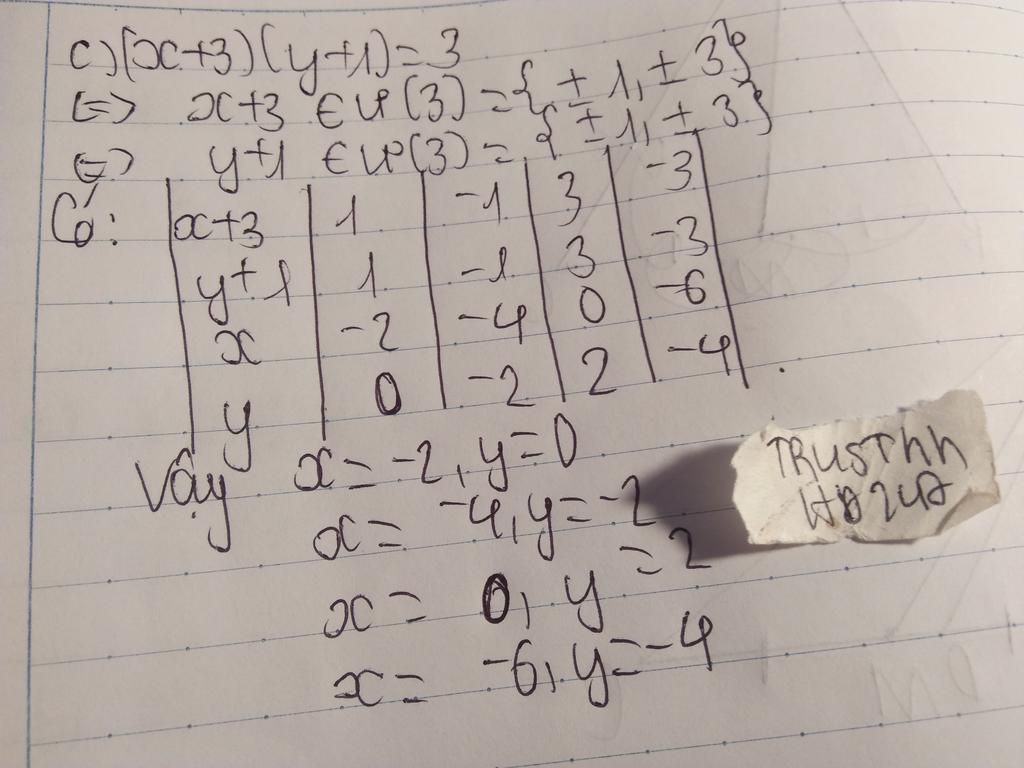 c) (x+3)(y+1)=3
<=> x+3 ∈ Ư(3) = {±1, ±3}
<=> y+1 ∈ Ư(3) = {±1, ±3}
Có: | x+3 | 1 | -1 | 3 | -3 |
| y+1 | 1 | -1 | 3 | -3 |
| x | -2 | -4 | 0 | -6 |
| y | 0 | -2 | 2 | -4 |
Vậy x = -2, y = 0
x = -4, y = -2
x = 0, y = 2
x = -6, y = -4
TRUSThh